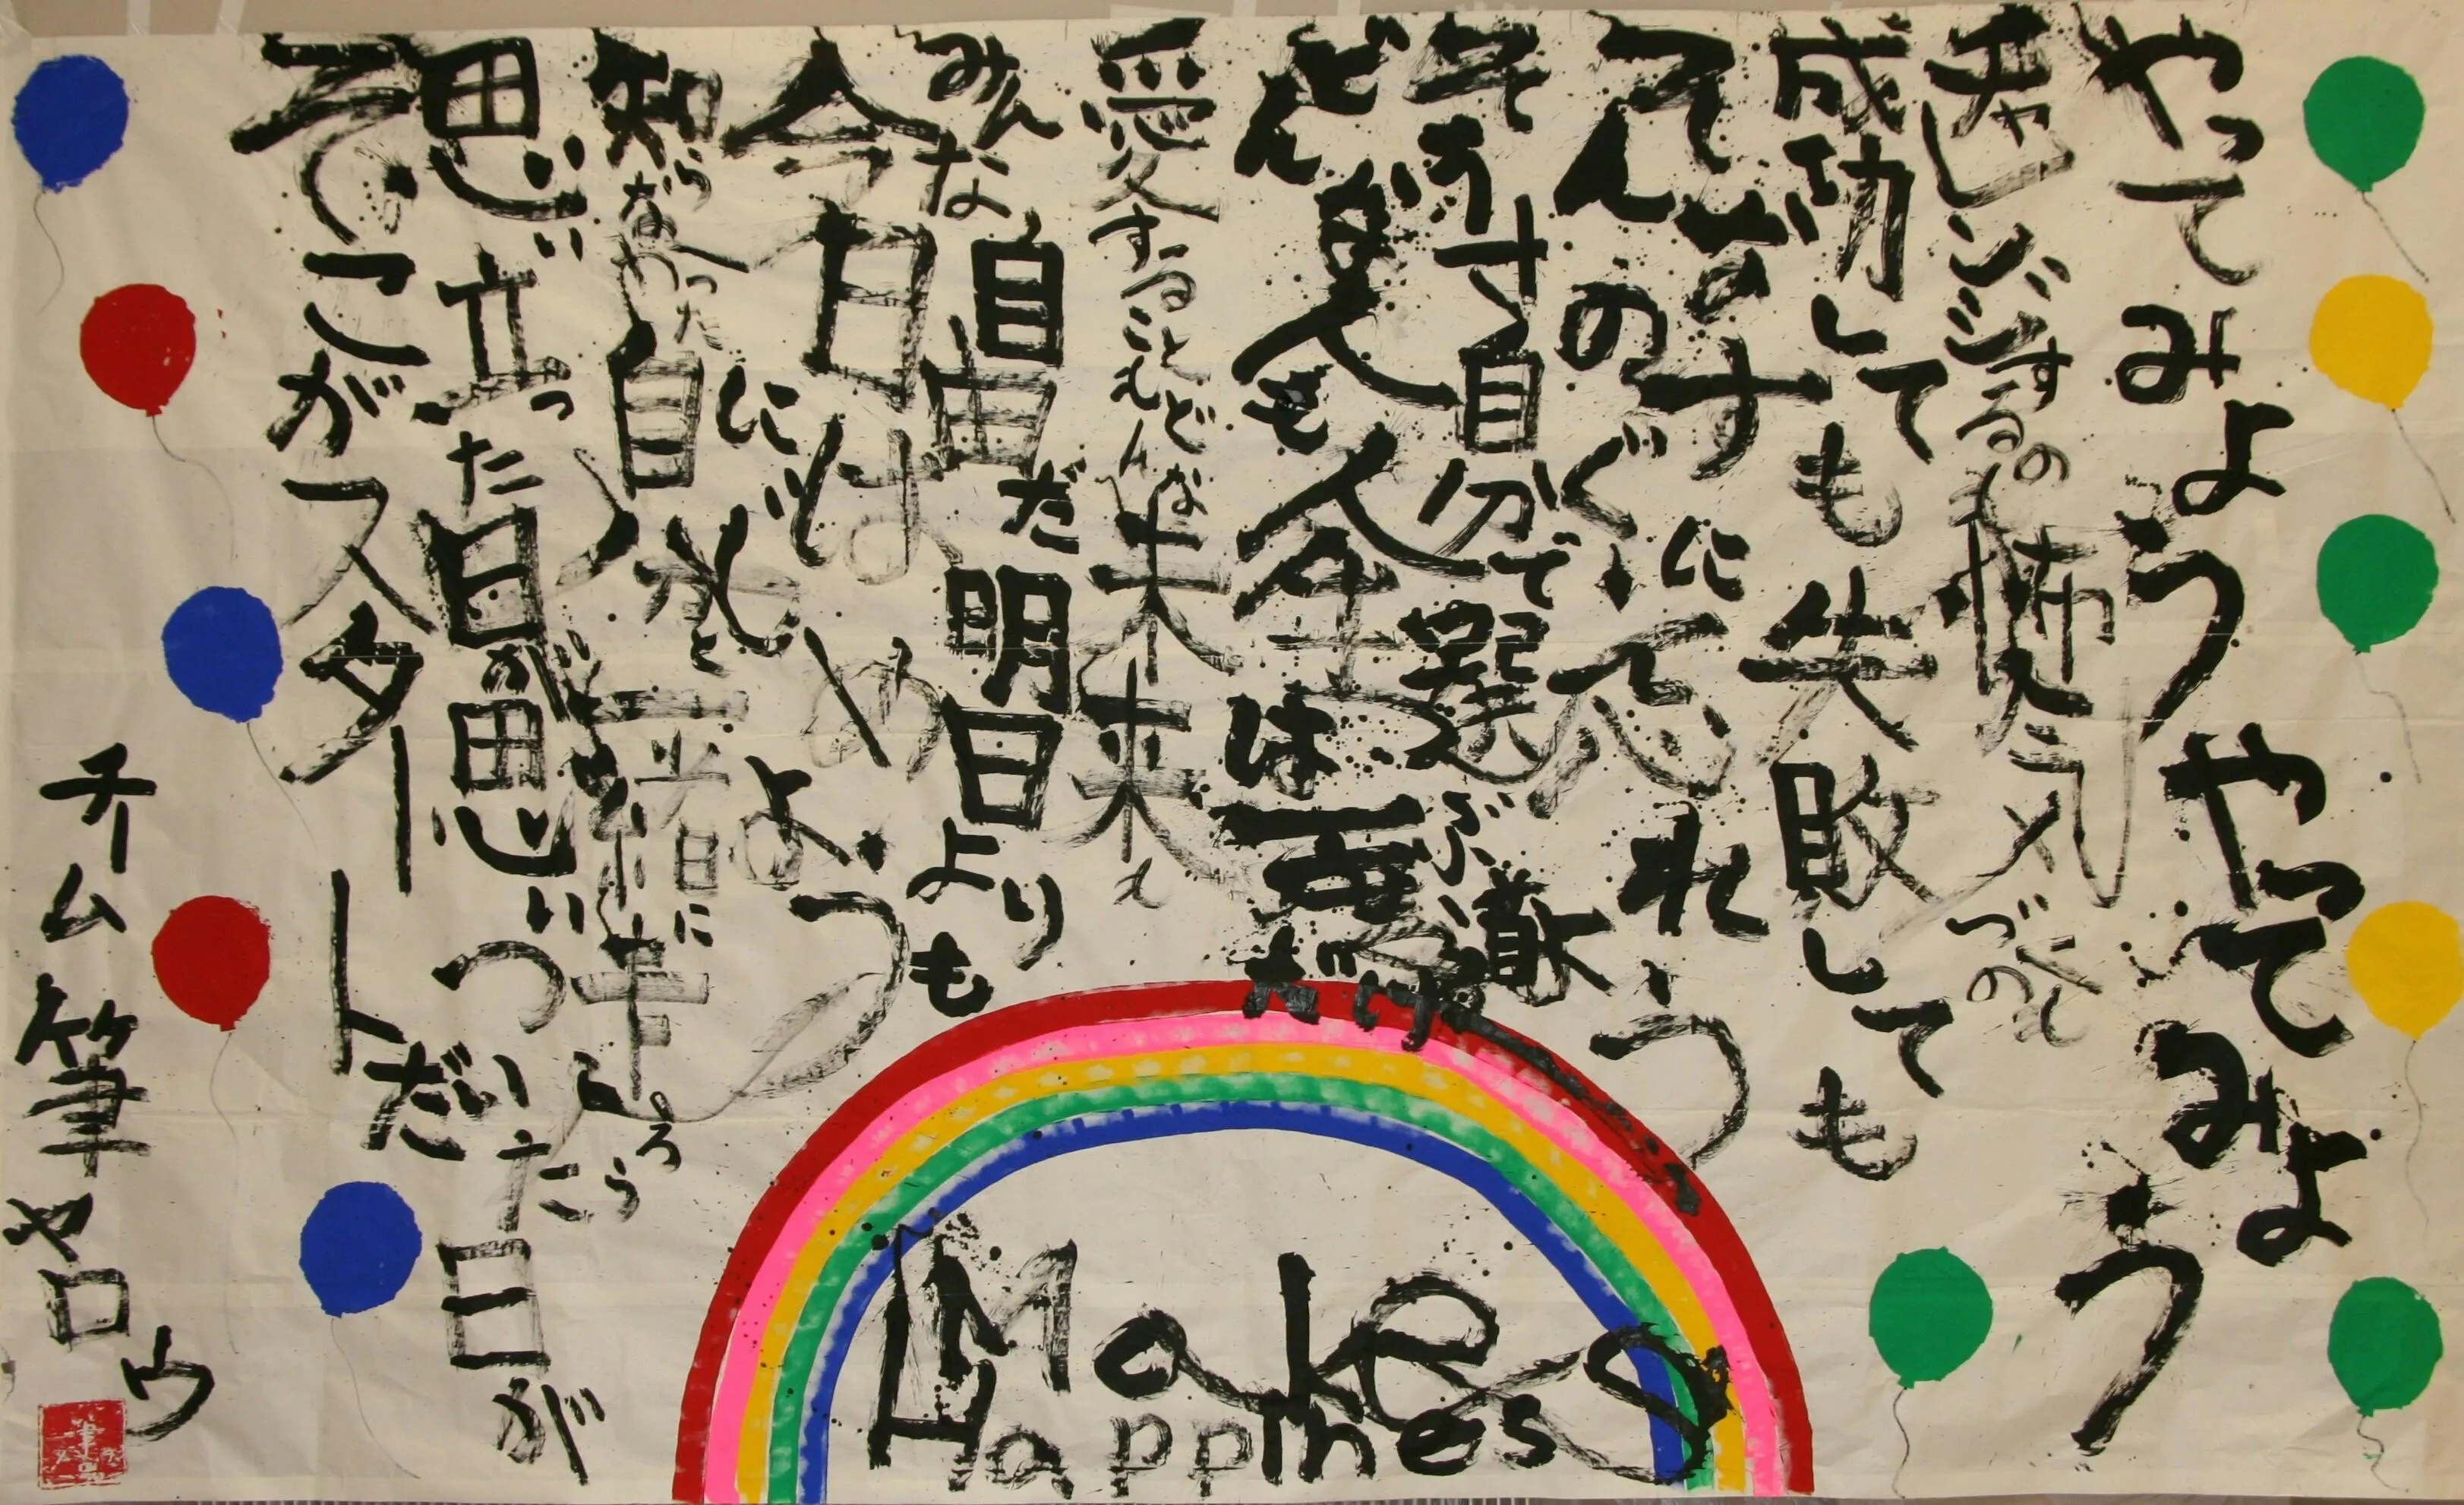 やってみようやってみよう
チャレンジするのも怖気づくのも
成功しても失敗しても
そんなのすぐに忘れよう
そうさ自分で選ぶ
どんな人も人生は一度だけ
愛することもどんな未来も
みんな自由だ明日よりも
今日は
知らなかった自分と一緒に
思い立った日が思いついた日が
そこがスタートだ
チーム筆ヤロウ
Make
Happiness